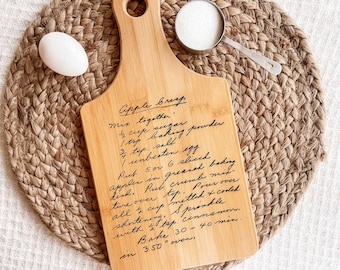 Apple Crisp
Mix together
¾ cup sugar
1 tsp baking powder
¾ tsp salt
1 unbeaten egg
Put 5 or 6 sliced
apples in greased baking
dish. Put crumb mix-
ture over top. Pour over
all ⅓ cup melted & cooled
shortening. Sprinkle
with ½ tsp cinnamon
Bake 30 - 40 min
in 350° oven